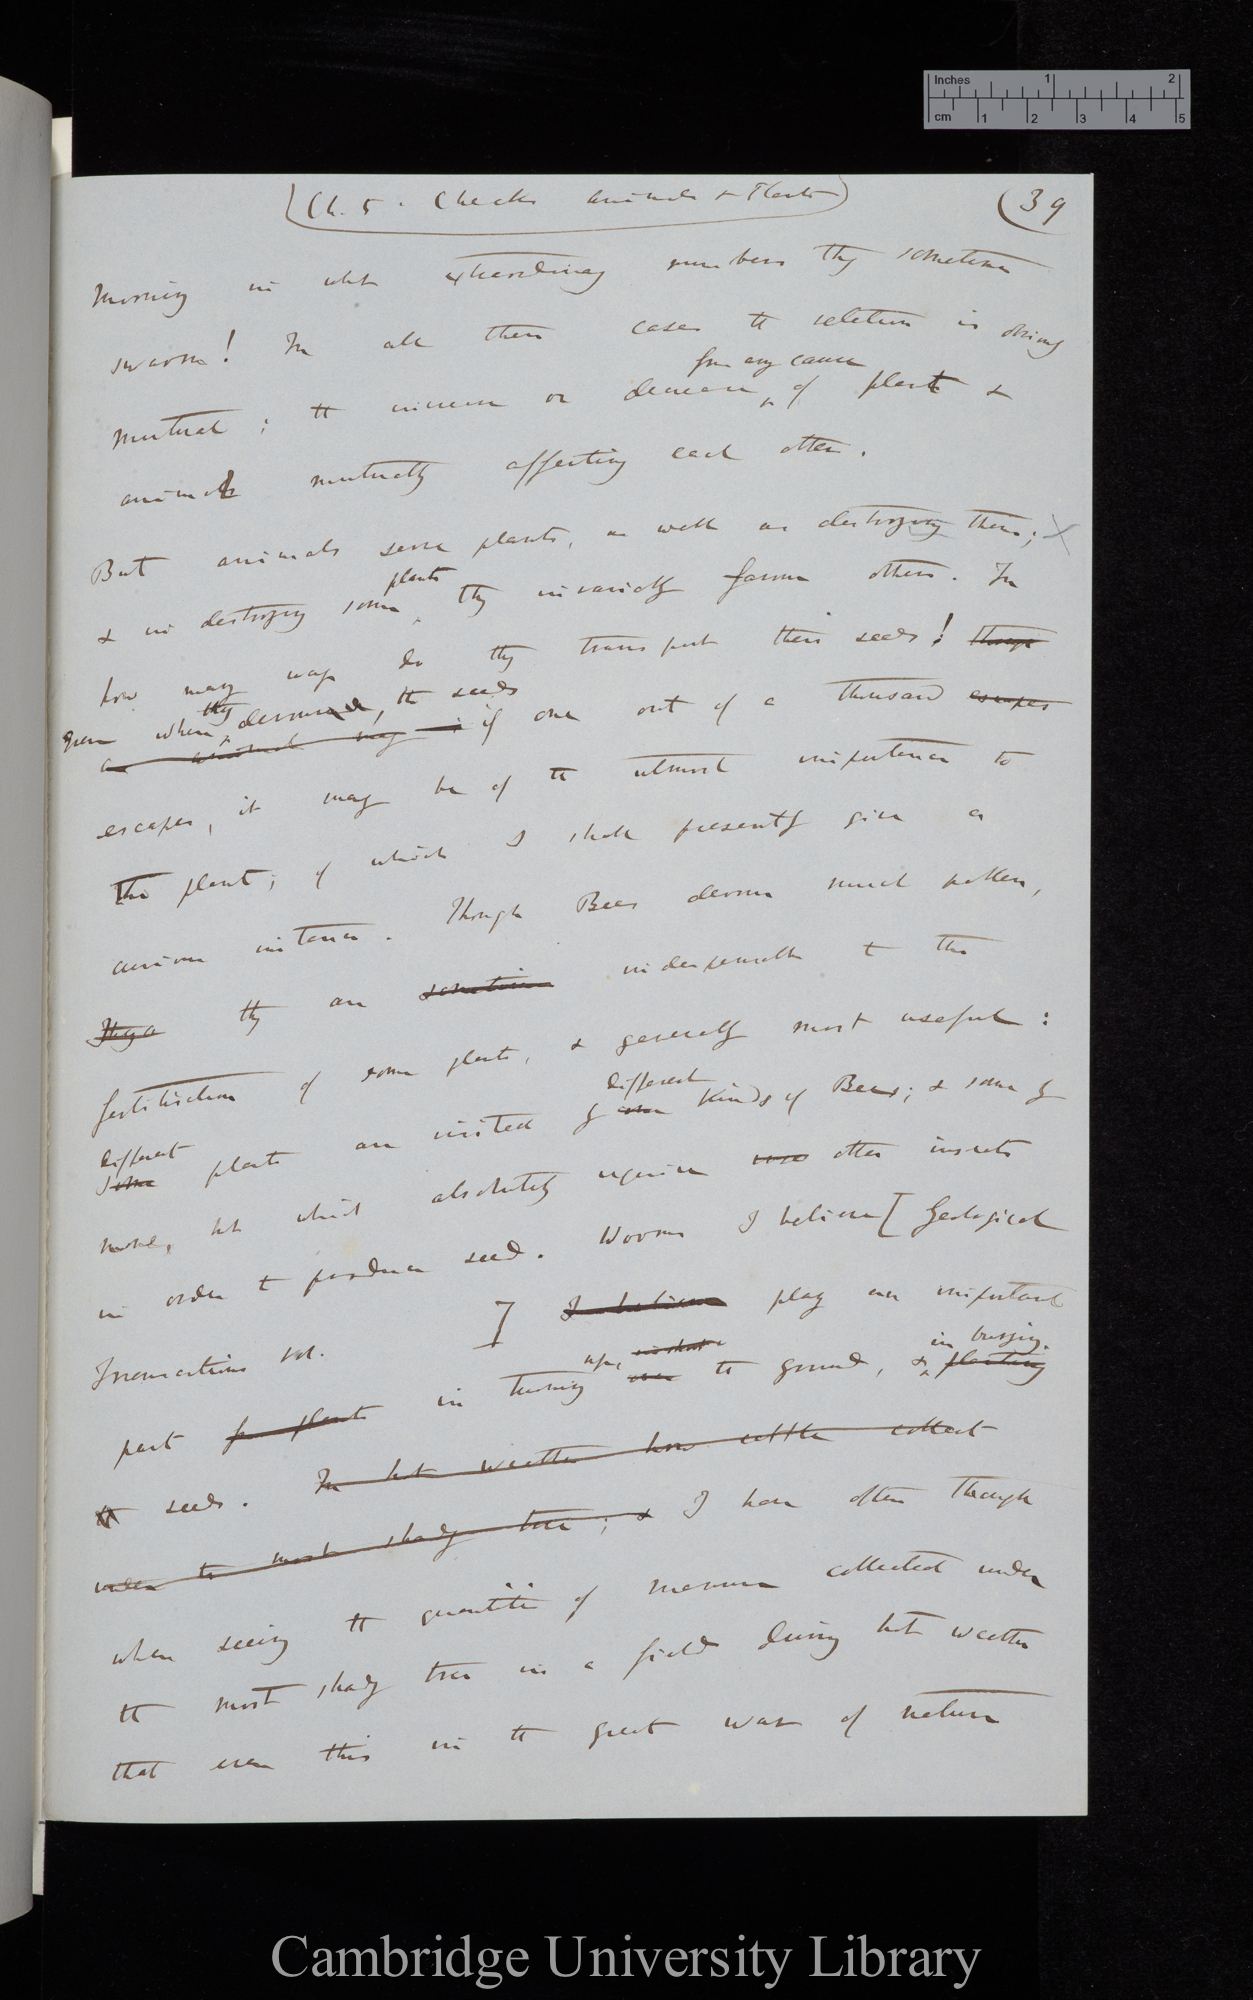 Inches 1 2
cm 1 2 3 4 5
(Ch. 5. Checks animals & Plants)
(39
morning in what extraordinary numbers they sometimes
swarm! In all these cases the relation is strictly
from any cause
mutual; the increase or decrease of plants &
animals mutually affecting each other.
But animals serve plants, as well as destroying them;
plants
& in destroying some, they invariably favour others. In
how many ways do they transport their seeds! though
Even when they devoured, the seeds
an animal may if one out of a thousand escapes
escapes, it may be of the utmost importance to
the plant; of which I shall presently give a
curious instance. Though Bees devour much pollen,
they are sometimes indispensable to the
fertilisation of some plants, & generally most useful:
different
different
some plants are visited by some kinds of Bees; & some by
none, but which absolutely require other insects
in order to produce seed. Worms I believe [Geological
Transactions vol. ] I believe play an important
upon in burying
part for plants in turning over the ground, & planting
the seeds. In hot weather how cattle collect
under the most shady tree; & I have often thought
when seeing the quantities of manure collected under
the most shady tree in a field during hot weather
that even this in the great war of nature
Cambridge University Library